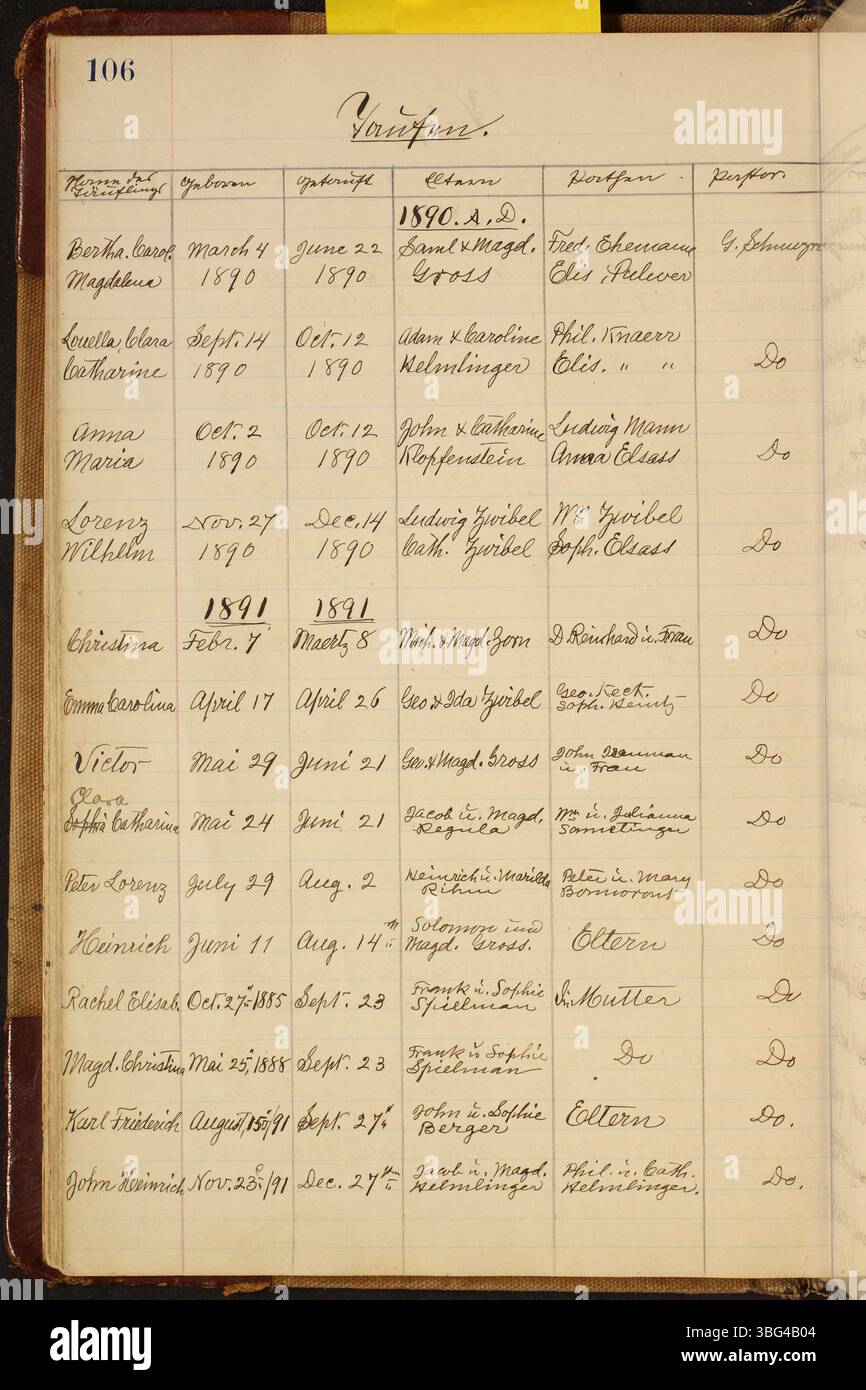 106
Taufen.
Name des Täuflings Geboren Getauft Eltern Pathen Pastor.
1890. A. D.
Bertha. Carol. March 4 June 22 Saml & Magd. Fred. Ehemann G.
Magdalena 1890 1890 Gross Elis.
Louella, Clara Sept. 14 Oct. 12 Adam & Caroline Phil. Knaerr
Catharine 1890 1890 Helmlinger Elis. " " Do
Anna Oct. 2 Oct. 12 John & Catharine Ludwig Mann
Maria 1890 1890 Klopfenstein Anna Elsass Do
Lorenz Nov. 27 Dec. 14 Ludwig Zwibel Wm Zwibel
Wilhelm 1890 1890 Cath. Zwibel Soph. Elsass Do
1891 1891
Christina Febr. 7 Maertz 8 Mich. & Magd. Zorn D. Reinhard u. Frau Do
Emma Carolina April 17 April 26 Geo. & Ida Zwibel Geo. Keck. Do
Soph. Heintz
Victor Mai 29 Juni 21 Geo. & Magd. Gross John Do
u. Frau
Clara
Sophia Catharina Mai 24 Juni 21 Jacob u. Magd. Wm u. Julianna Do
Regula Sametinger
Peter Lorenz July 29 Aug. 2 Heinrich u. Marilda Peter u. Mary Do
Rihm
Heinrich Juni 11 Aug. 14th Solomon und Eltern Do
Magd. Gross.
Rachel Elisab. Oct. 27" 1885 Sept. 23 Frank u. Sophie Die Mutter Do
Spielman
Magd. Christina Mai 25", 1888 Sept. 23 Frank u Sophie Do Do
Spielman
Karl Friederich August, 15"/91 Sept. 27" John u. Sophie Eltern Do.
Berger
John Heinrich Nov. 23/91 Dec. 27 Jacob u. Magd. Phil. u. Cath. Do.
Helmlinger Helmlinger.
alamy
Image ID: 3BG4B04
www.alamy.com